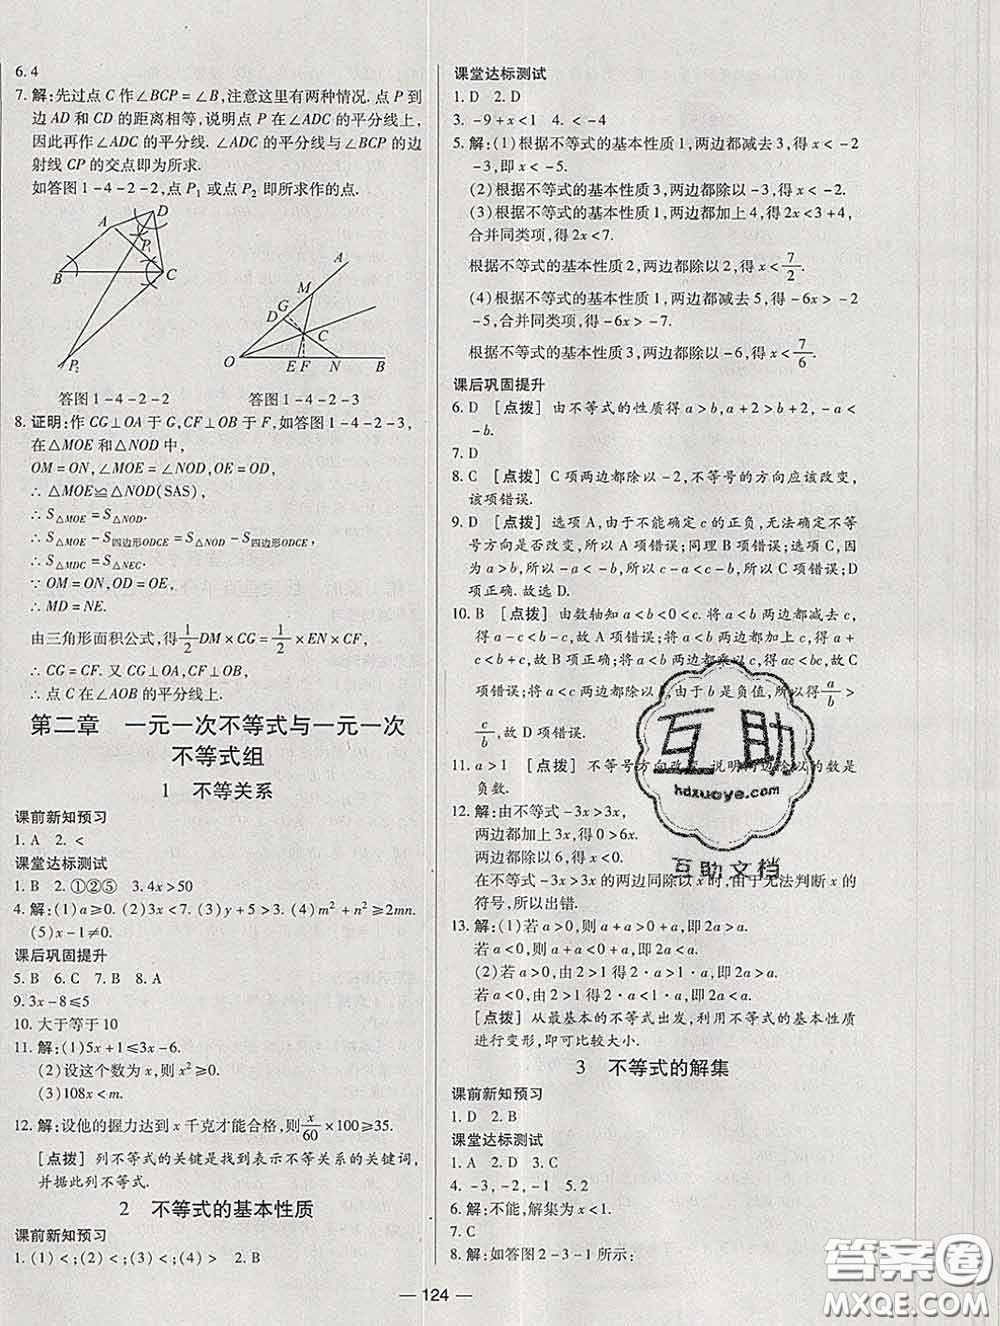 6. 4
7. 解:先过点 C 作∠BCP=∠B,注意这里有两种情况. 点 P 到
边 AD 和 CD 的距离相等,说明点 P 在∠ADC 的平分线上,
因此再作∠ADC 的平分线. ∠ADC 的平分线与∠BCP 的边
射线 CP 的交点即为所求.
如答图 1-4-2-2,点 P₁ 或点 P₂ 即所求作的点.
A D P₁ B C P₂
A M G D C O E F N B
答图 1-4-2-2 答图 1-4-2-3
8. 证明:作 CG⊥OA 于 G,CF⊥OB 于 F,如答图 1-4-2-3,
在△MOE 和△NOD 中,
OM=ON,∠MOE=∠NOD,OE=OD.
∴△MOE≌△NOD(SAS).
∴S△MOE=S△NOD.
∴S△MOE-S四边形ODCE=S△NOD-S四边形ODCE.
∴S△MDC=S△NEC.
∵OM=ON,OD=OE,
∴MD=NE.
由三角形面积公式,得 1/2 DM×CG= 1/2 ×EN×CF,
∴CG=CF. 又 CG⊥OA,CF⊥OB,
∴点 C 在∠AOB 的平分线上.
第二章 一元一次不等式与一元一次
不等式组
1 不等关系
课前新知预习
1. A 2. <
课堂达标测试
1. B 2. ①②⑤ 3. 4x>50
4. 解:(1)a≥0. (2)3x<7. (3)y+5>3. (4)m²+n²≥2mn.
(5)x-1≠0.
课后巩固提升
5. B 6. C 7. B 8. A
9. 3x-8≤5
10. 大于等于 10
11. 解:(1)5x+1≤3x-6.
(2)设这个数为 x,则 x²≥0.
(3)108<m.
12. 解:设他的握力达到 x 千克才能合格,则 x/60 ×100≥35.
[点拨] 列不等式的关键是找到表示不等关系的关键词,
并据此列不等式.
2 不等式的基本性质
课前新知预习
1. (1)<;(2)<;(3)<;(4)> 2. B
课堂达标测试
1. D 2. D
3. -9+x<1 4. <-4
5. 解:(1)根据不等式的基本性质 1,两边都减去 3,得 x<-2
-3,即 x<-5.
(2)根据不等式的基本性质 3,两边都除以-3,得 x<-2.
(3)根据不等式的基本性质 1,两边都加上 4,得 2x<3+4,
合并同类项,得 2x<7.
根据不等式的基本性质 2,两边都除以 2,得 x< 7/2.
(4)根据不等式的基本性质 1,两边都减去 5,得-6x>-2
-5,合并同类项,得-6x>-7.
根据不等式的基本性质 3,两边都除以-6,得 x< 7/6.
课后巩固提升
6. D [点拨] 由不等式的性质得 a>b,a+2>b+2,-a<
-b.
7. D
8. C [点拨] C 项两边都除以-2,不等号的方向应该改变,
该项错误.
9. D [点拨] 选项 A,由于不能确定 c 的正负,无法确定不等
号方向是否改变,所以 A 项错误;同理 B 项错误;选项 C,因
为 a>b,所以-a<-b,所以 c-a<c-b,所以 C 项错误;D
项正确. 故选 D.
10. B [点拨] 由数轴知 a<b<0<c. 将 a<b 两边都减去 c,
得 a-c<b-c,故 A 项错误;将 a<b 两边都加上 c,得 a+
c<b+c,故 B 项正确;将 a<b 两边都乘 c,得 ac<bc,故 C
项错误;将 a<b 两边都除以 b,由于 b 是负值,所以 a/b >
c/b,故 D 项错误.
11. a>1 [点拨] 不等号方向改变,说明两边除以的数是
负数.
12. 解:由不等式-3x>3x,
两边都加上 3x,得 0>6x.
两边都除以 6,得 0>x.
在不等式-3x>3x 的两边同除以 x 时,由于无法判断 x 的
符号,所以出错.
13. 解:(1)若 a>0,则 a+a>0+a,即 2a>a.
若 a<0,则 a+a<0+a,即 2a<a.
(2)若 a>0,由 2>1 得 2·a>1·a,即 2a>a.
若 a<0,由 2>1 得 2·a<1·a,即 2a<a.
[点拨] 从最基本的不等式出发,利用不等式的基本性质
进行变形,即可比较大小.
3 不等式的解集
课前新知预习
1. D 2. B
课堂达标测试
1. A 2. D 3. C
4. -3,-2,-1 5. 2
6. 解:不能,解集为 x<1.
7. C
8. 解:如答图 2-3-1 所示:
— 124 —
互助
hdzuoye.com
互助文档
答案圈
MXQE.COM